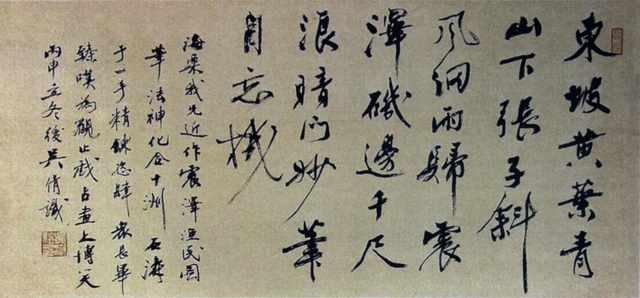 東坡黃葉青
山下張子斜
風細雨歸震
澤磯邊千尺
浪暗門妙筆
自忘機
海粟我兄近作震澤漁民圖
筆法神化合十洲石濤
于一手精鍊恣肆衆長畢
臻嘆為觀止戲占畫上博笑
丙申立冬後吳倩識